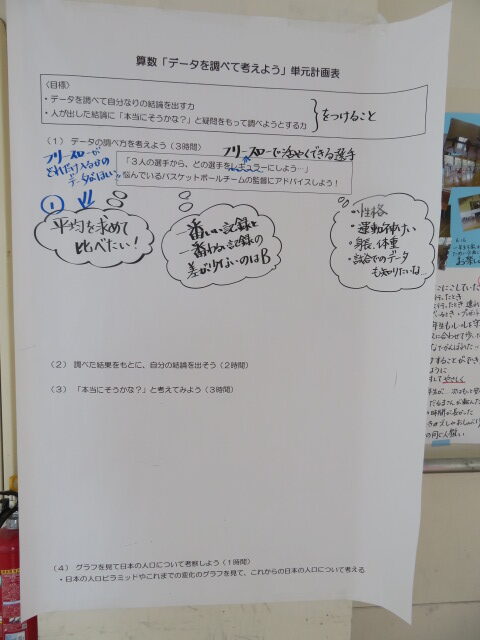 算数「データを調べて考えよう」単元計画表
〈目標〉
・データを調べて自分なりの結論を出す力
・人が出した結論に「本当にそうかな?」と疑問をもって調べようとする力
をつけること
(1) データの調べ方を考えよう(3時間)
フリースローで活やくできる選手
フリースローが
どれだけ入るかの
データがほしい
「3人の選手から、どの選手をレギュラーにしよう…」
悩んでいるバスケットボールチームの監督にアドバイスしよう!
①
平均を求めて
比べたい!
一番いい記録と
一番わるい記録の
差が少ないのはB
・性格
・運動神けい
・身長、体重
・試合でのデータ
も知りたいな…
(2) 調べた結果をもとに、自分の結論を出そう(2時間)
(3) 「本当にそうかな?」と考えてみよう(3時間)
(4) グラフを見て日本の人口について考察しよう(1時間)
・日本の人口ピラミッドやこれまでの変化のグラフを見て、これからの日本の人口について考える